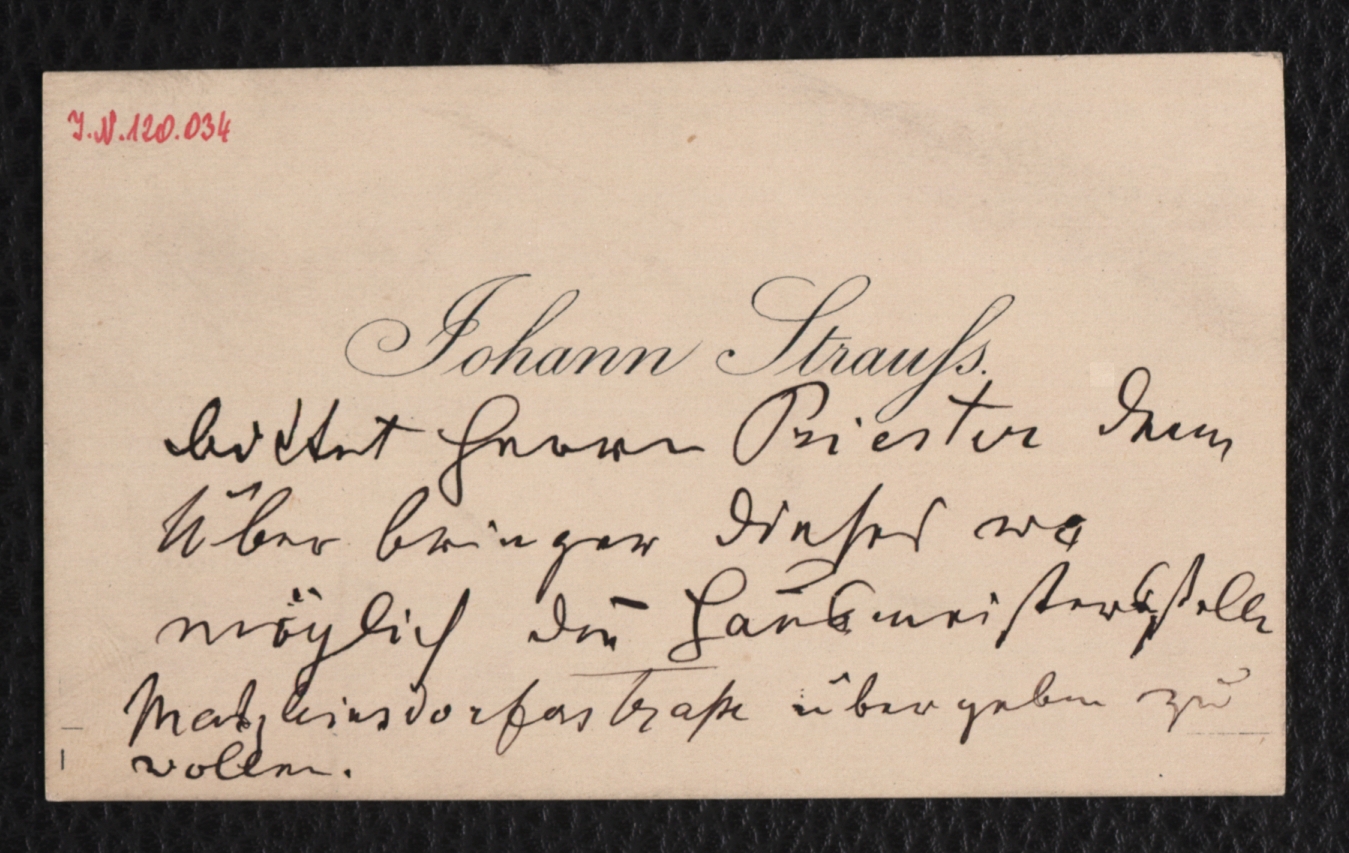 I.N.120.034
Johann Strauss.
bittet Herrn Priester dem
Überbringer dieses wo
möglich die Hausmeistersstelle
Matzleinsdorferstraße übergeben zu
wollen.